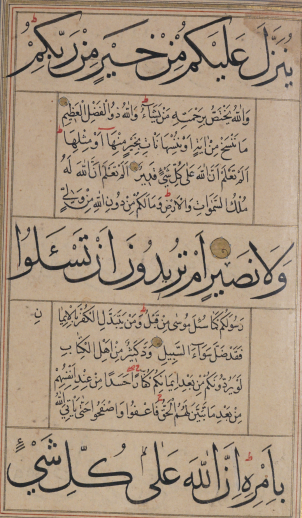 يُنَزَّلَ عَلَيْكُمْ مِنْ خَيْرٍ مِنْ رَبِّكُمْ
وَاللهُ يَخْتَصُّ بِرَحْمَتِهِ مَنْ يَشَاءُ وَاللهُ ذُو الْفَضْلِ الْعَظِيمِ
مَا نَنْسَخْ مِنْ اٰيَةٍ اَوْ نُنْسِهَا نَأْتِ بِخَيْرٍ مِنْهَا اَوْ مِثْلِهَا
اَلَمْ تَعْلَمْ اَنَّ اللهَ عَلٰى كُلِّ شَيْءٍ قَدِيرٌ اَلَمْ تَعْلَمْ اَنَّ اللهَ لَهُ
مُلْكُ السَّمٰوَاتِ وَالْاَرْضِ وَمَا لَكُمْ مِنْ دُونِ اللهِ مِنْ وَلِيٍّ
وَلَا نَصِيرٍ اَمْ تُرِيدُونَ اَنْ تَسْئَلُوا
رَسُولَكُمْ كَمَا سُئِلَ مُوسٰى مِنْ قَبْلُ وَمَنْ يَتَبَدَّلِ الْكُفْرَ بِالْاِيمَانِ
فَقَدْ ضَلَّ سَوَاءَ السَّبِيلِ وَدَّ كَثِيرٌ مِنْ اَهْلِ الْكِتَابِ
لَوْ يَرُدُّونَكُمْ مِنْ بَعْدِ اِيمَانِكُمْ كُفَّارًا حَسَدًا مِنْ عِنْدِ اَنْفُسِهِمْ
مِنْ بَعْدِ مَا تَبَيَّنَ لَهُمُ الْحَقُّ فَاعْفُوا وَاصْفَحُوا حَتّٰى يَأْتِيَ اللهُ
بِاَمْرِهِ اِنَّ اللهَ عَلٰى كُلِّ شَيْءٍ